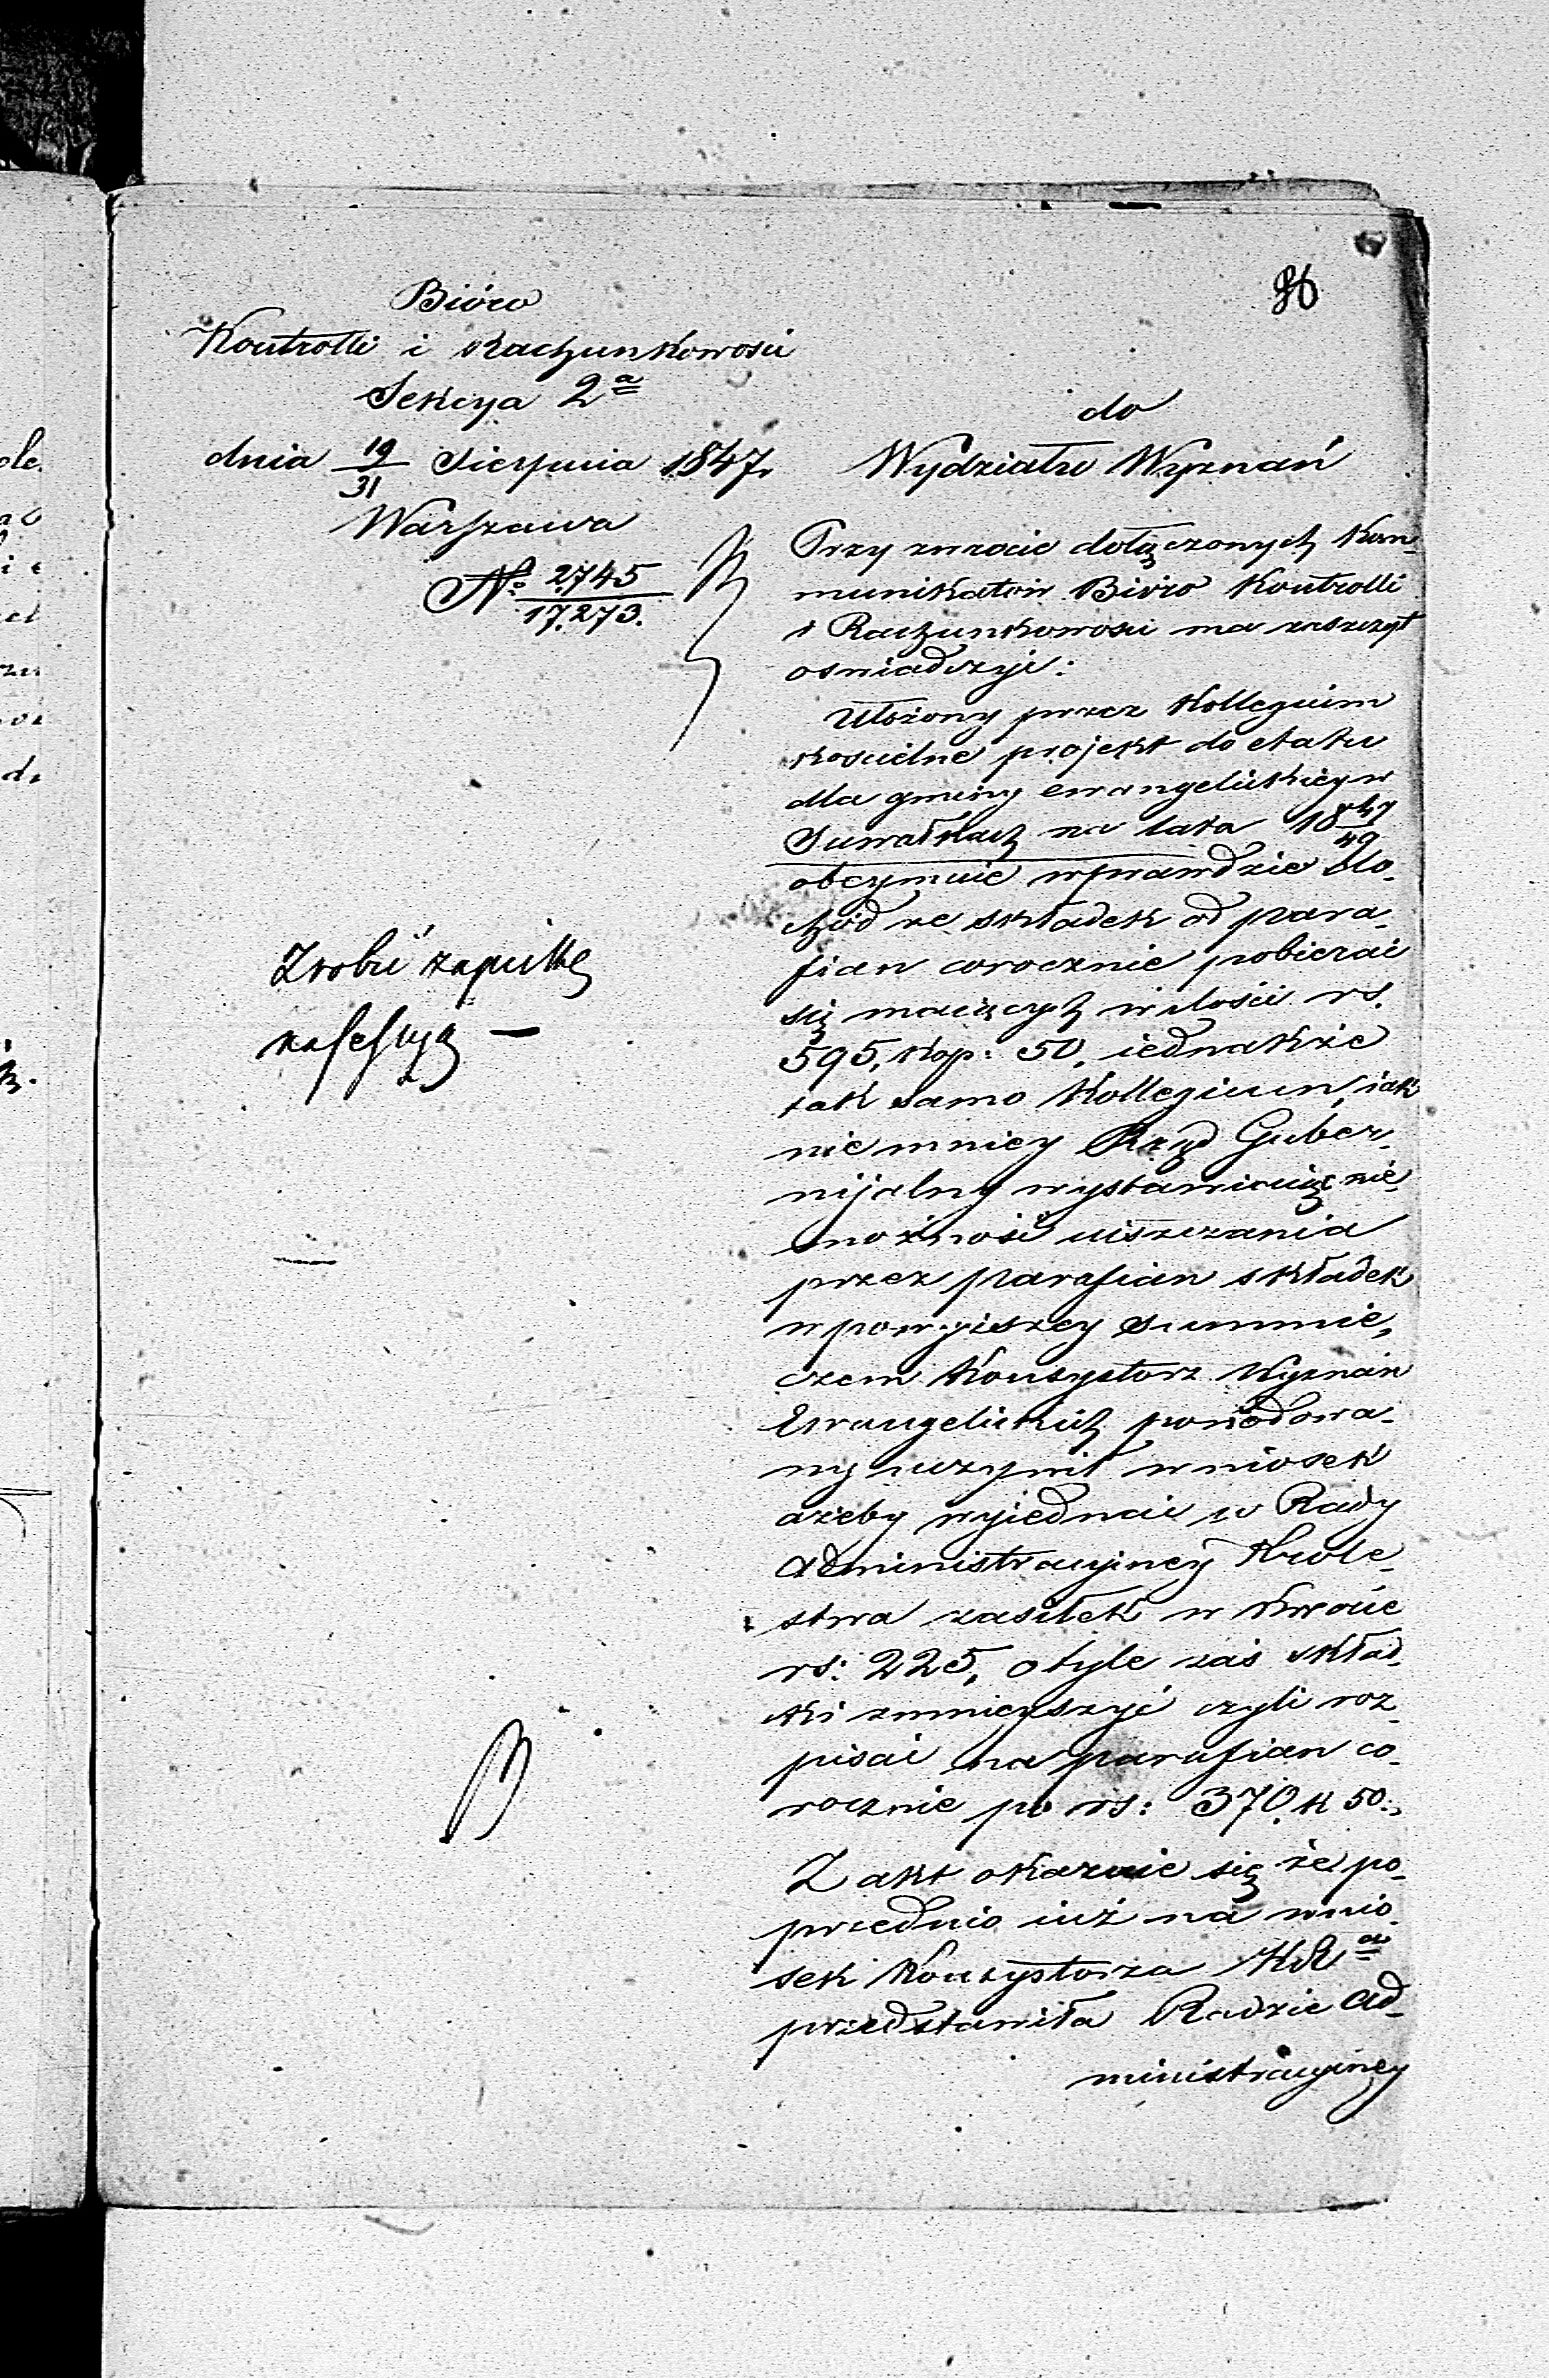 Bióro
Kontrolli i Rachunkowosci
Sekcya 2ª
dnia 19/31 Sierpnia 1847.
Warszawa
No. 2745/17.273.
do
Wydziału Wyznań
Przy zwrocie dołączonych kom-
munikatów Bióro Kontrolli
i Rachunkowosci ma zaszczyt
oswiadczyć:
Ułożony przez Kollegium
koscielne projekt do etatu
dla gminy ewangelickiey w
Suwałkach na lata 1847/49
obeymuie wprawdzie do-
chód ze składek od para-
fian corocznie pobierać
się maiących w ilości rs.
595, kop: 50, iednakże
tak samo Kollegium, iak
niemniey Rząd Guber-
nijalny wystawiaiąc nie-
możność uiszczania
przez parafian składek
w powyższey summie,
czem Konsystorz Wyznań
Ewangelickich powodowa-
ny uczynił wniosek
ażeby wyiednać w Rady
Administracyiney Króle-
stwa zasiłek w kwocie
rs: 225, o tyle zaś skład-
ki zmnieyszyć czyli roz-
pisać na parafian co-
rocznie po rs: 370, k 50.
Z akt okazuie się że po-
przednio iuż na wnio-
sek Konsystorza KRª
przedstawiła Radzie Ad-
ministracyiney
Zrobić zapiskę
na sessyą —